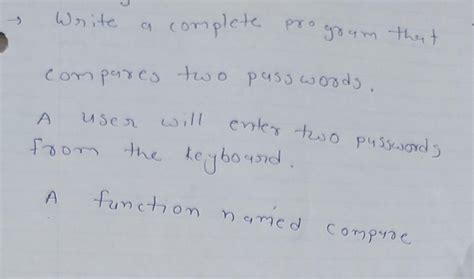 → Write a complete program that
compares two passwords.
A user will enter two passwords
from the keyboard.
A function named compare